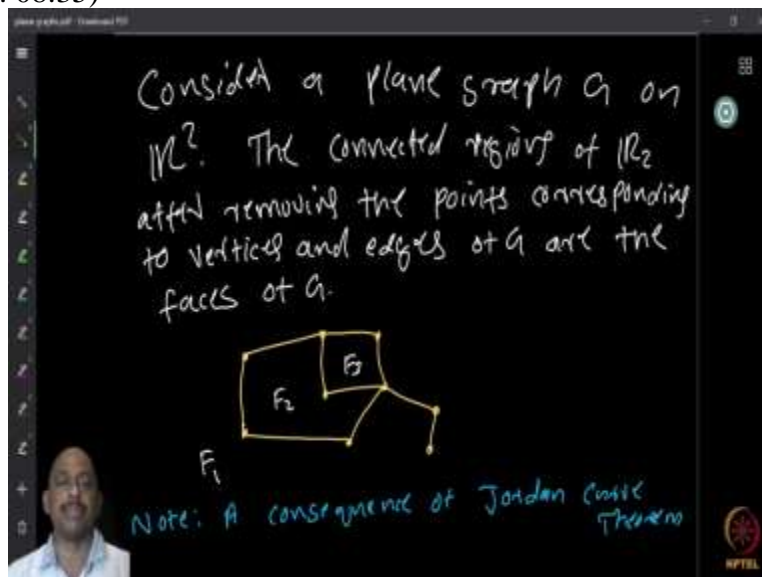 08:55)
Consider a plane graph G on
IR². The connected regions of IR₂
after removing the points corresponding
to vertices and edges of G are the
faces of G.
F₃
F₂
F₁
Note: A consequence of Jordan Curve
Theorem
NPTEL